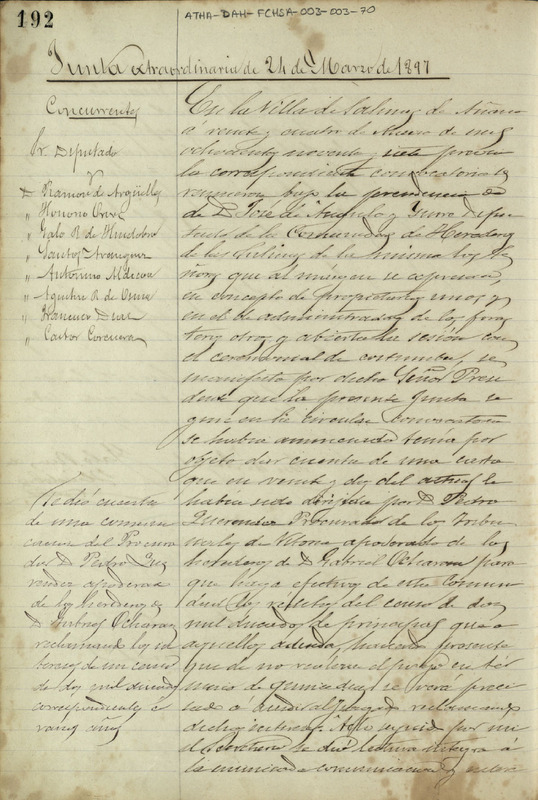 192
ATHA-DAH-FCHSA-003-003-70
Junta extraordinaria de 24 de Marzo de 1897
Concurrentes
Sr. Diputado
D Ramon de Argüelles
" Honorio
" Galo R. de Huidobro
" Santos Aranguiz
" Antonino
" Agustin R. de
" Francisco
" Castor Corcuera
Se dió cuenta
de una comuni
cacion del Procura
dor D Pedro
apoderado
de los herederos de
D Gabriel Ocharan
reclamando los in
tereses de un censo
de dos mil ducados
correspondiente á
varios años
En la Villa de Salinas de Añana
á veinte y cuatro de Marzo de mil
ochocientos noventa y siete previa
la correspondiente convocatoria se
reunieron bajo la presidencia de
de D José de Angulo y Dipu
tado de la Comunidad de Herederos
de las Salinas de la misma los Se
ñores que al márgen se espresan,
en concepto de propietarios unos y
en el de administradores de los foras
teros otros, y abierta la sesión con
el ceremonial de costumbre, se
manifestó por dicho Señor Presi
dente que la presente Junta se
gun en la circular convocatoria
se habia anunciado tenía por
objeto dar cuenta de una carta
que en veinte y dos del actual le
habia sido dirijida por D Pedro
Procurador de los Tribu
nales de Vitoria apoderado de los
herederos de D Gabriel Ocharan para
que haga efectivos de esta Comuni
dad los réditos del censo de dos
mil ducados de principal que á
aquellos adeuda, haciendo presente
que de no realizar el pago en tér
mino de quince dias se verá preci
sado á acudir al Juzgado reclamando
dichos intereses
el Secretario se dió lectura integra á
la mencionada comunicacion y